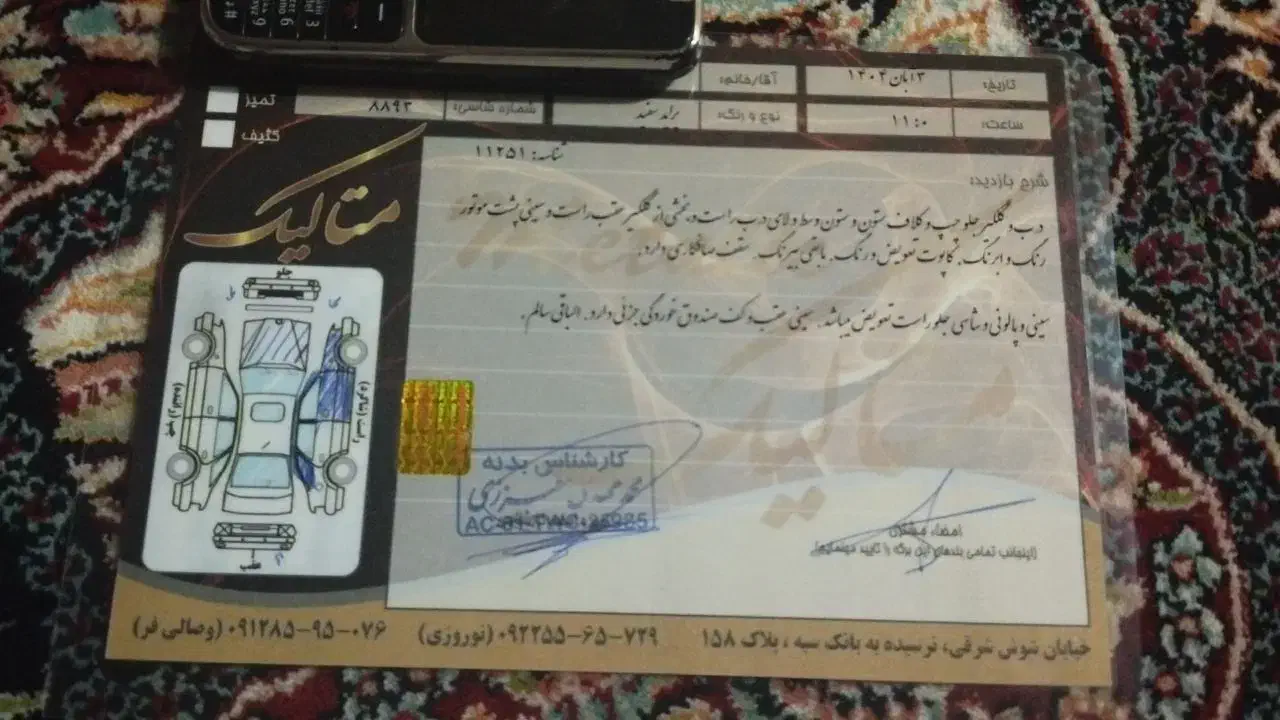 تاریخ: ۳ آبان ۱۴۰۴
آقا/خانم:
ساعت: ۱۱:۰
نوع و رنگ: پراید سفید
شماره شاسی: ۸۸۹۳
تمیز
کثیف
شناسه: ۱۱۲۵۱
متالیک
شرح بازدید:
درب و گلگیر جلو چپ و کلاف ستون و ستون وسط و لای درب راست و بخشی از گلگیر عقب راست و سینی پشت موتور
رنگ و ابرنگ. کاپوت تعویض و رنگ. مابقی بیرنگ. سقف صافکاری دارد.
سینی و پالونی و شاسی جلو راست تعویض میباشد. سینی عقب و کف صندوق خوردگی جزئی دارد. الباقی سالم.
جلو
چپ (راننده)
راست (شاگرد)
عقب
کارشناس بدنه
امضاء مشتری
(اینجانب تمامی بندهای این برگه را تایید مینمایم)
خیابان شوش شرقی، نرسیده به بانک سپه ، پلاک ۱۵۸
۰۹۲۲۵۵-۶۵-۷۲۹ (نوروزی)
۰۹۱۲۸۵-۹۵-۰۷۶ (وصالی فر)